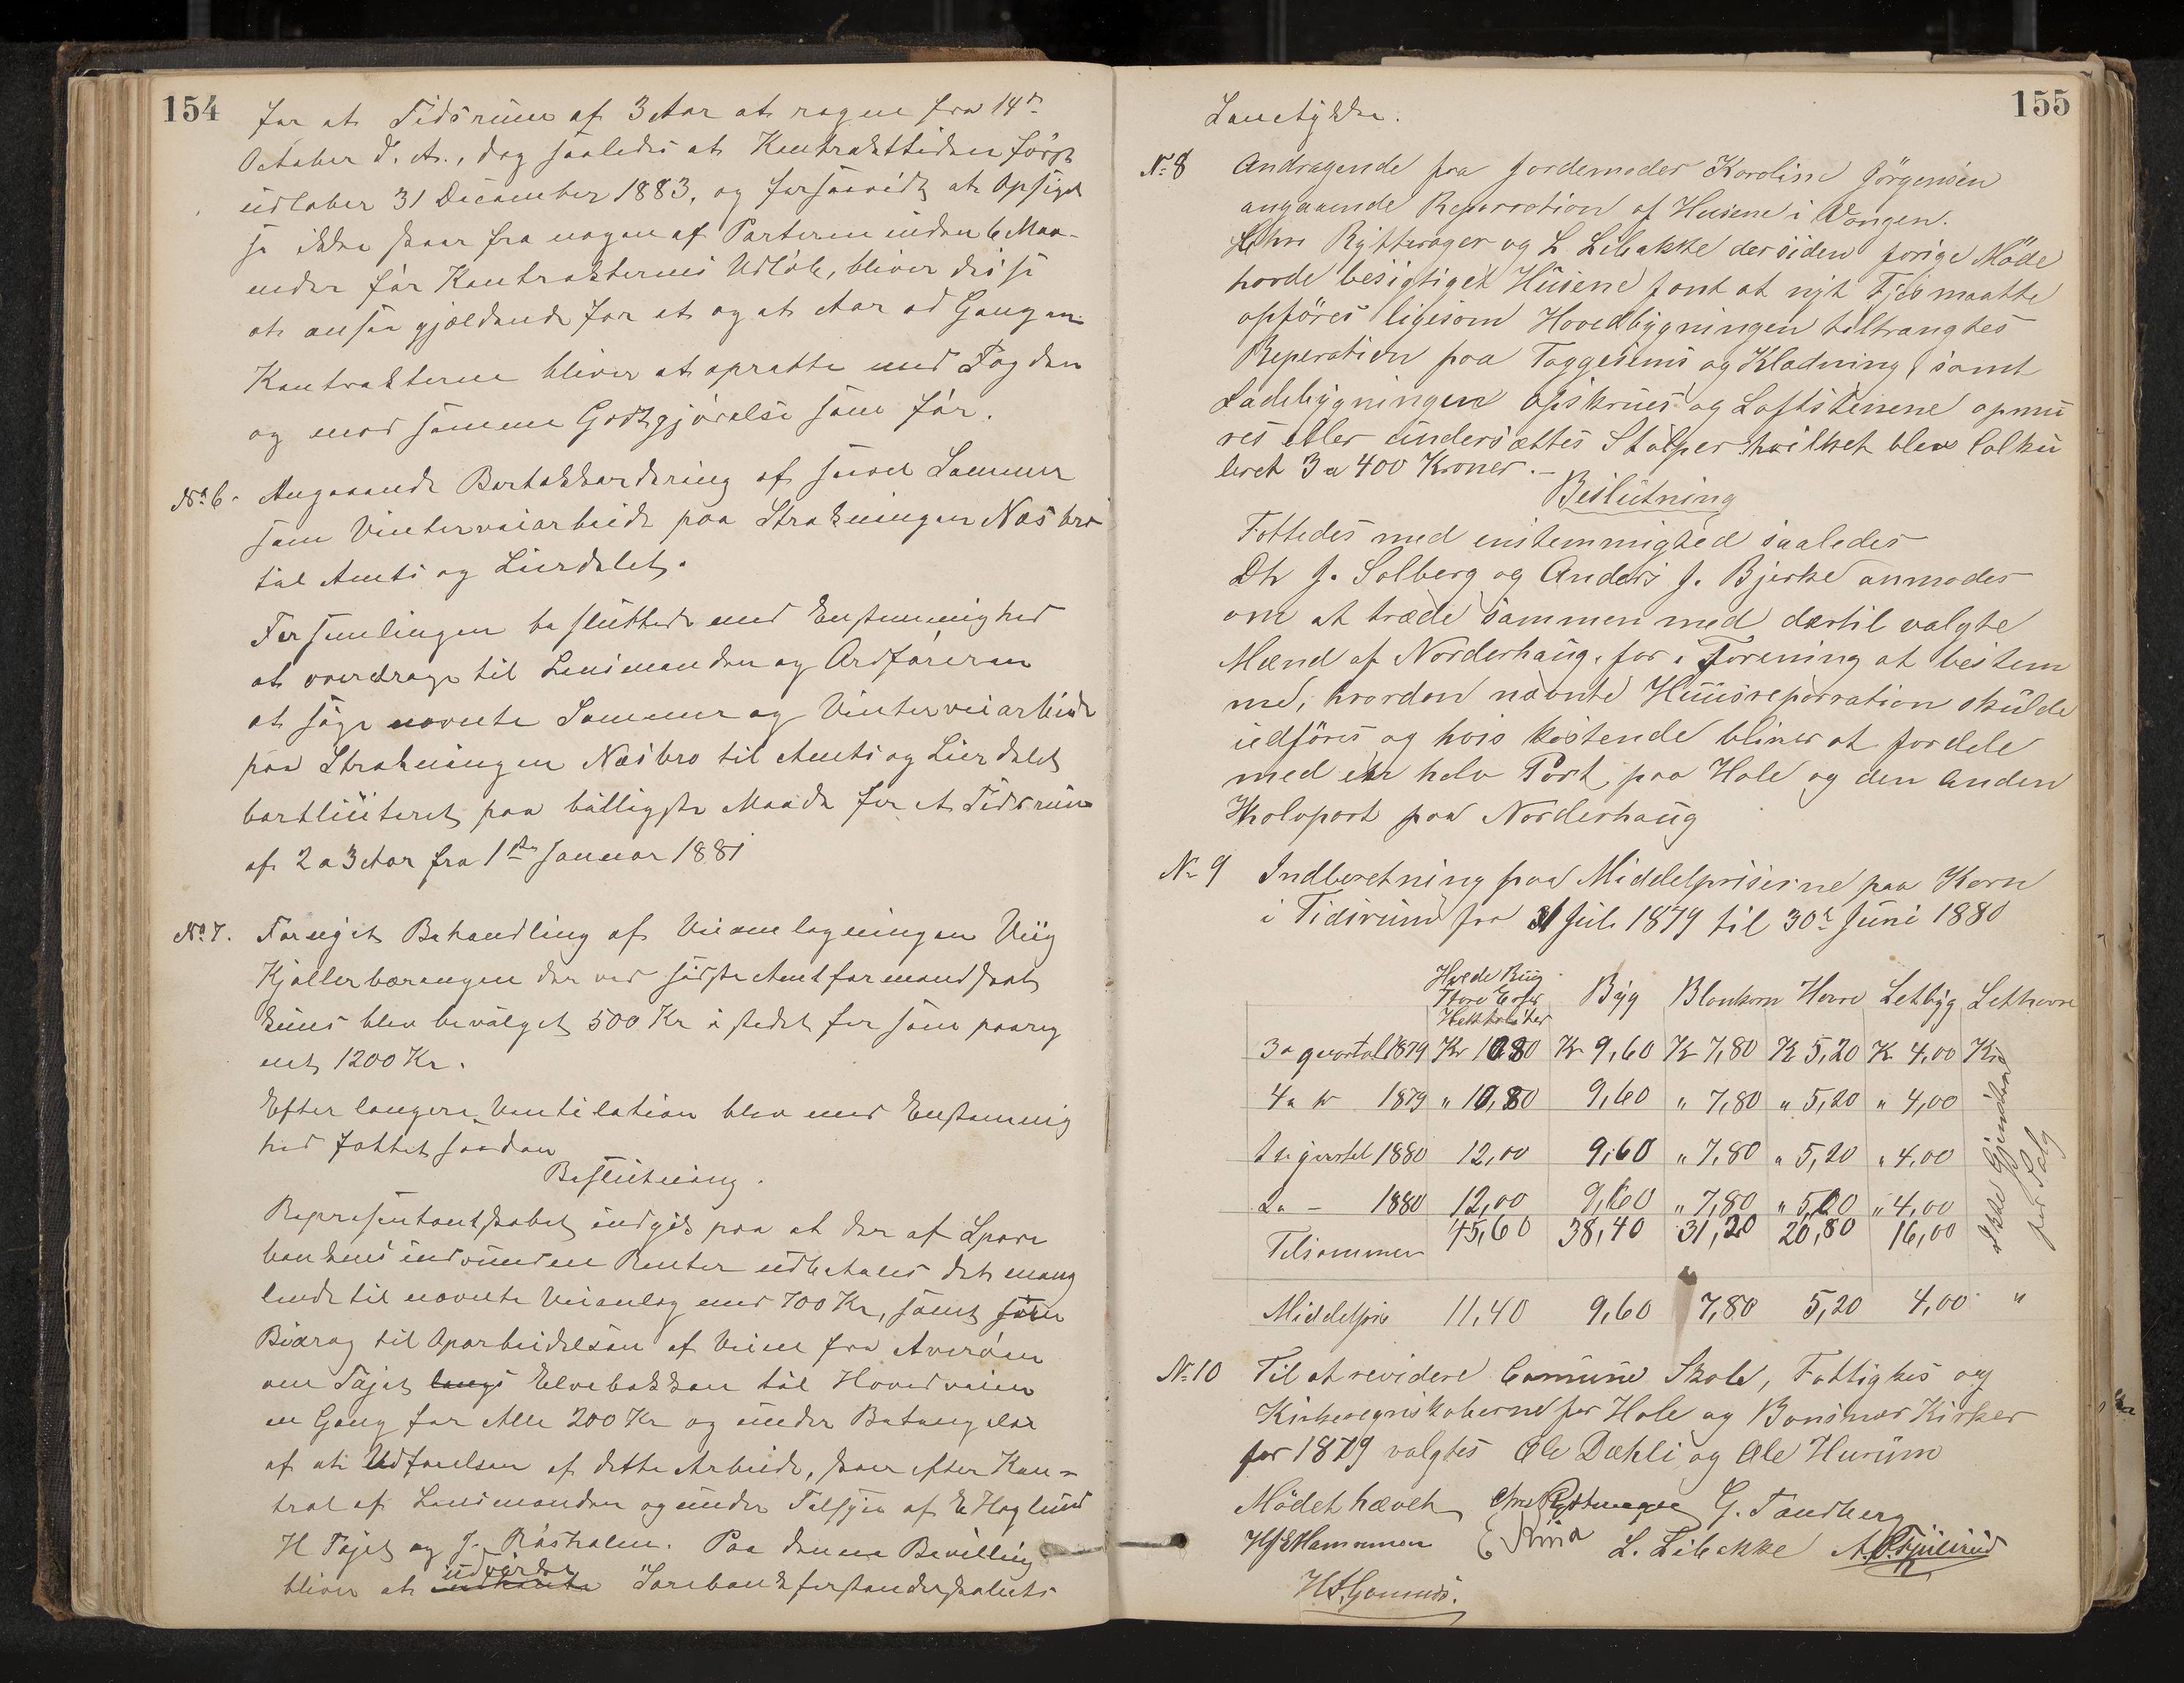 154
for et Tidsrum af 3 Aar at regne fra 14de
October d. A., dog saaledes at Kontrakttiden först
udløber 31 December 1883, og forsaavidt at Opsigel
se ikke skeer fra nogen af Parterne inden 6 Maa-
neder før Kontrakternes Udløb, bliver disse
at ansee gjældende for et og et Aar ad Gangen.
Kontrakterne bliver at oprette med Fogden
og mod samme Godtgjørelse som før.
No 6. Angaaende Bortakkordering af saavel Sommer
som Vinterveiarbeide paa Strækningen Næsbro
til Amts og Lierdalet.
Forsamlingen besluttede med Enstemmighed
at overdrage til Lensmanden og Ordføreren
at søge nævnte Sommer og Vinterveiarbeide
paa Strækningen Næsbro til Amts og Lierdalet
bortliciteret paa billigste Maade for et Tidsrum
af 2 a 3 Aar fra 1ste Januar 1881
No 7. Fornyet Behandling af Veiomlægningen Viig
Kjellerberangen der ved sidste Amtformandskab
kuns blev bevilget 500 Kr i stedet for som paareg
net 1200 Kr.
Efter længere Ventilation blev med Enstemmig
hed fattet saadan
Beslutning.
Representantskabet indgik paa at der af Spare
bankens indvundne Renter udbetales det mang
lende til nævnte Veianlæg med 700 Kr, samt som
Bidrag til Oparbeidelsen af Veien fra Averøen
om Fajet langs Elvebakken til Hovedveien
en Gang for Alle 200 Kr og under Betingelse
af at Udførelsen af dette Arbeide, skeer efter Kon-
trol af Lensmanden og under Tilsyn af E Høglund
H Fajet og J. Røsholm. Paa denne Bevilling
udvirke
bliver at indhente Sparebankforstanderskabets
155
Samtykke.
No 8 Andragende fra Jordemoder Karoline Jörgensen
angaaende Reparration af Husene i Vangen.
Chr Rytterager og L Libakke der siden forige Möde
havde besigtiget Husene fant at nyt Fjös maatte
opföres ligesom Hovedbygningen tiltrængtes
Reperation paa Taggesims og Klædning, samt
Ladebygningen opskrues og Laftstenene opmu
res eller undersættes Stolper hvilket blev Calku
leret 3 a 400 Kroner.-
Beslutning
Fattedes med enstemmighed saaledes
Dh J. Solberg og Anders J. Bjerke anmodes
om at træde sammen med dertil valgte
Mænd af Norderhaug, for i Forening at bestem
me, hvordan nævnte Huusreparration skulde
udföres og hvis kostende bliver at fordele
med en halv Part paa Hole og den anden
Halvpart paa Norderhaug
No 9 Indberetning paa Middelpriserne paa Korn
i Tidsrum fra 31 Juli 1879 til 30te Juni 1880
Hvede Rug
Store Erter
Hektoliter Byg Blankorn Havre Letbyg Lethavre
3e qvartal 1879 Kr 10 80 Kr 9,60 Kr 7,80 Kr 5,20 Kr 4,00 Kr
4e do 1879 " 10,80 9,60 " 7,80 " 5,20 " 4,00
1ste qvartal 1880 12,00 9,60 " 7,80 " 5,20 " 4,00
2e - 1880 12,00 9,60 " 7,80 " 5,20 " 4,00
Tilsammen 45,60 38,40 31,20 20,80 16,00
Ikke Gjenstand
for Salg
Middelpris 11,40 9,60 7,80 5,20 4,00 "
No 10 Til at revidere Comune Skole, Fattigkas og
Kirkeregnskaberne for Hole og Bønsnes Kirker
for 1879 valgtes Ole Dæhli og Ole Hurum
Mödet hævet Chr Rytterager G. Tandberg
L. Libakke